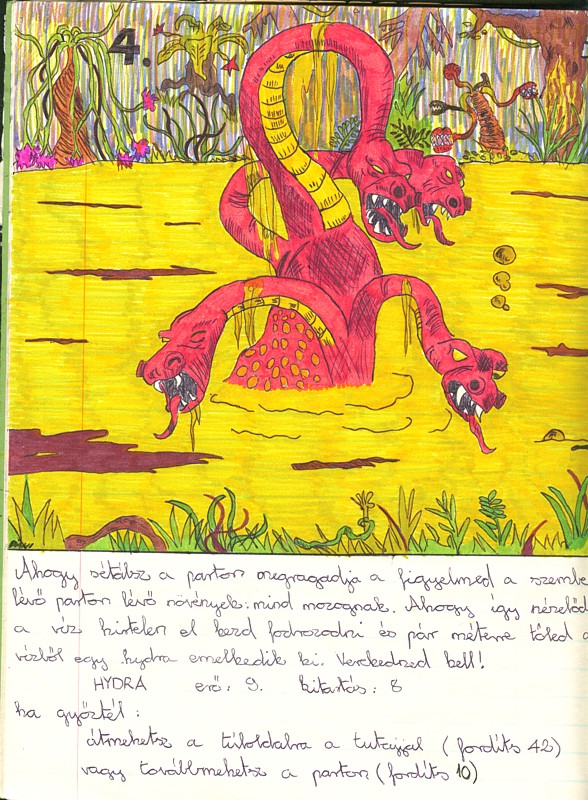 4.
Ahogy sétálsz a parton megragadja a figyelmed a szembe
lévő parton lévő növények: mind mozognak. Ahogy így nézelőd
a víz hirtelen el kezd fodrozodni és pár méterre tőled a
vízből egy hydra emelkedik ki. Verekedned kell!
HYDRA erő: 9. kitartás: 8
ha győztél:
átmehetsz a túloldalra a tutajjal (fordíts 42)
vagy továbbmehetsz a parton (fordíts 10)